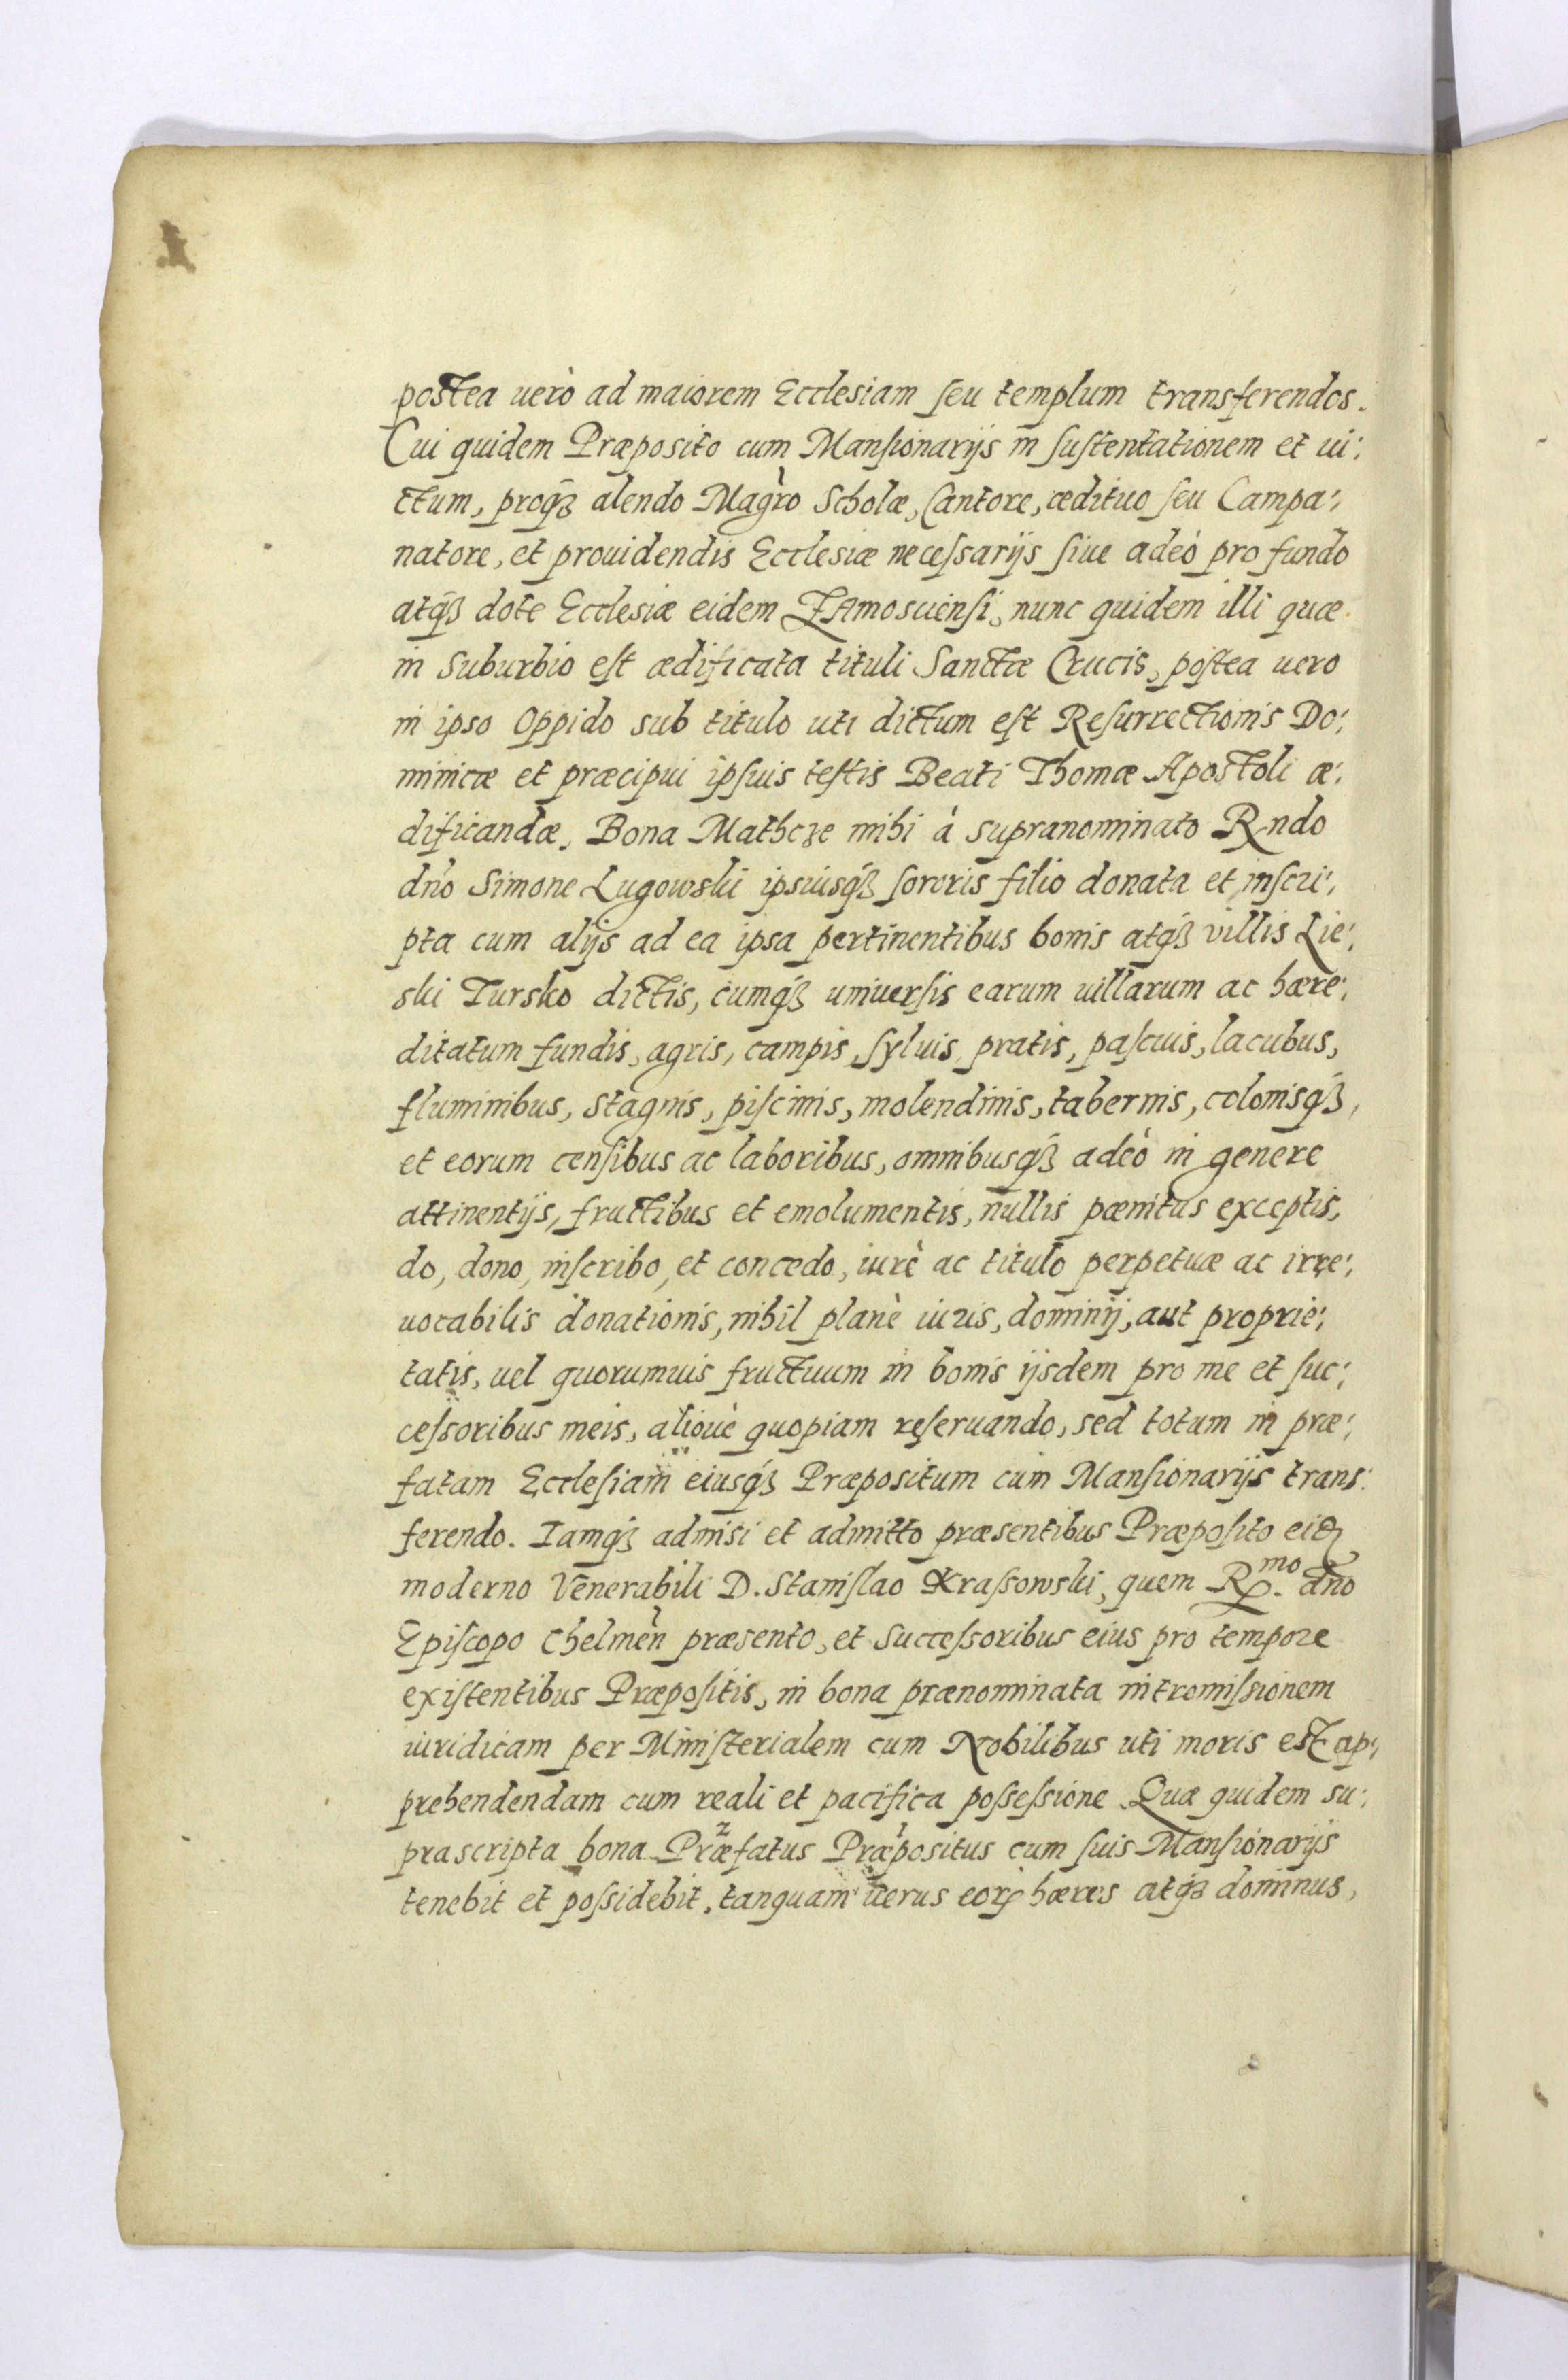 postea uerò ad maiorem Ecclesiam seu templum transferendos.
Cui quidem Præposito cum Mansionarijs in sustentationem et ui:
ctum, proq́ꝫ alendo Magr̀o Scholæ, Cantore, ædituo seu Campa:
natore, et prouidendis Ecclesiæ necessarijs siue adeò pro fundo
atq́ꝫ dote Ecclesiæ eidem ZAmosciensi, nunc quidem illi quæ
in Suburbio est ædificata tituli Sanctæ Crucis, postea uero
in ipso Oppido sub titulo uti dictum est Resurrectionis Do:
minicæ et præcipui ipsuis testis Beati Thomæ Apostoli æ:
dificandæ, Bona Mathcze mihi à supranominato Rndo
dno Simone Lugowski ipsiusq́ꝫ sororis filio donata et inscri:
pta cum alijs ad ea ipsa pertinentibus bonis atq́ꝫ villis Lie:
ski Tursko dictis, cumq́ꝫ uniuersis earum uillarum ac hære:
ditatum fundis, agris, campis, syluis, pratis, pascuis, lacubus,
fluminibus, stagnis, piscinis, molendinis, tabernis, colonisq́ꝫ,
et eorum censibus ac laboribus, omnibusq́ꝫ adeò in genere
attinentijs, fructibus et emolumentis, nullis pænitus exceptis,
do, dono, inscribo, et concedo, iurè ac titulo perpetuæ ac irre:
uocabilis donationis, nihil planè iuris, dominij, aut proprie:
tatis, uel quorumuis fructuum in bonis ijsdem pro me et suc:
cessoribus meis, alioué quopiam reseruando, sed totum in præ:
fatam Ecclesiam eiusq́ꝫ Præpositum cum Mansionarijs trans:
ferendo. Iamq́ꝫ admisi et admitto præsentibus Præposito eiꝺ
moderno Venerabili D. Stanislao Krassowski, quem Rp.mo dno
Episcopo Chelmen̄ præsento, et Successoribus eius pro tempore
existentibus Præpositis, in bona prænominata intromissionem
iuridicam per Ministerialem cum Nobilibus uti moris est ap:
prehendendam cum reali et pacifica possessione. Quæ quidem su:
prascripta bona Præfatus Præpositus cum suis Mansionarijs
tenebit et possidebit, tanquam uerus eorꝝ hæres atq́ꝫ dominus,